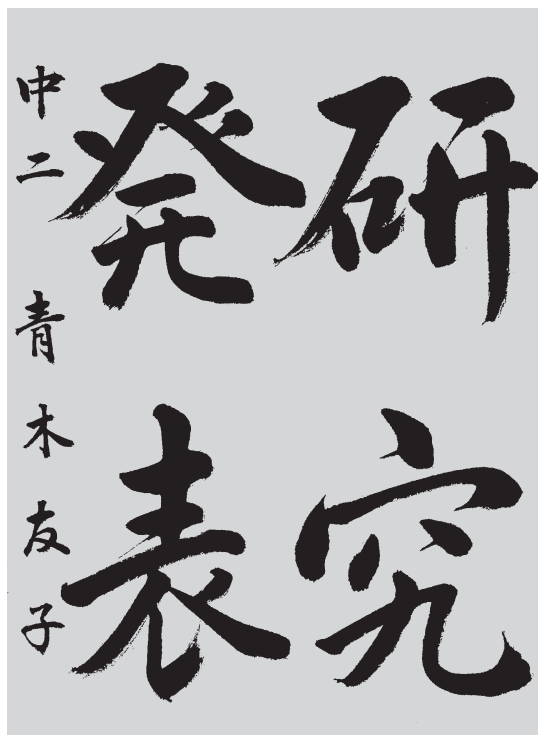 研究
発表
中二 青木友子